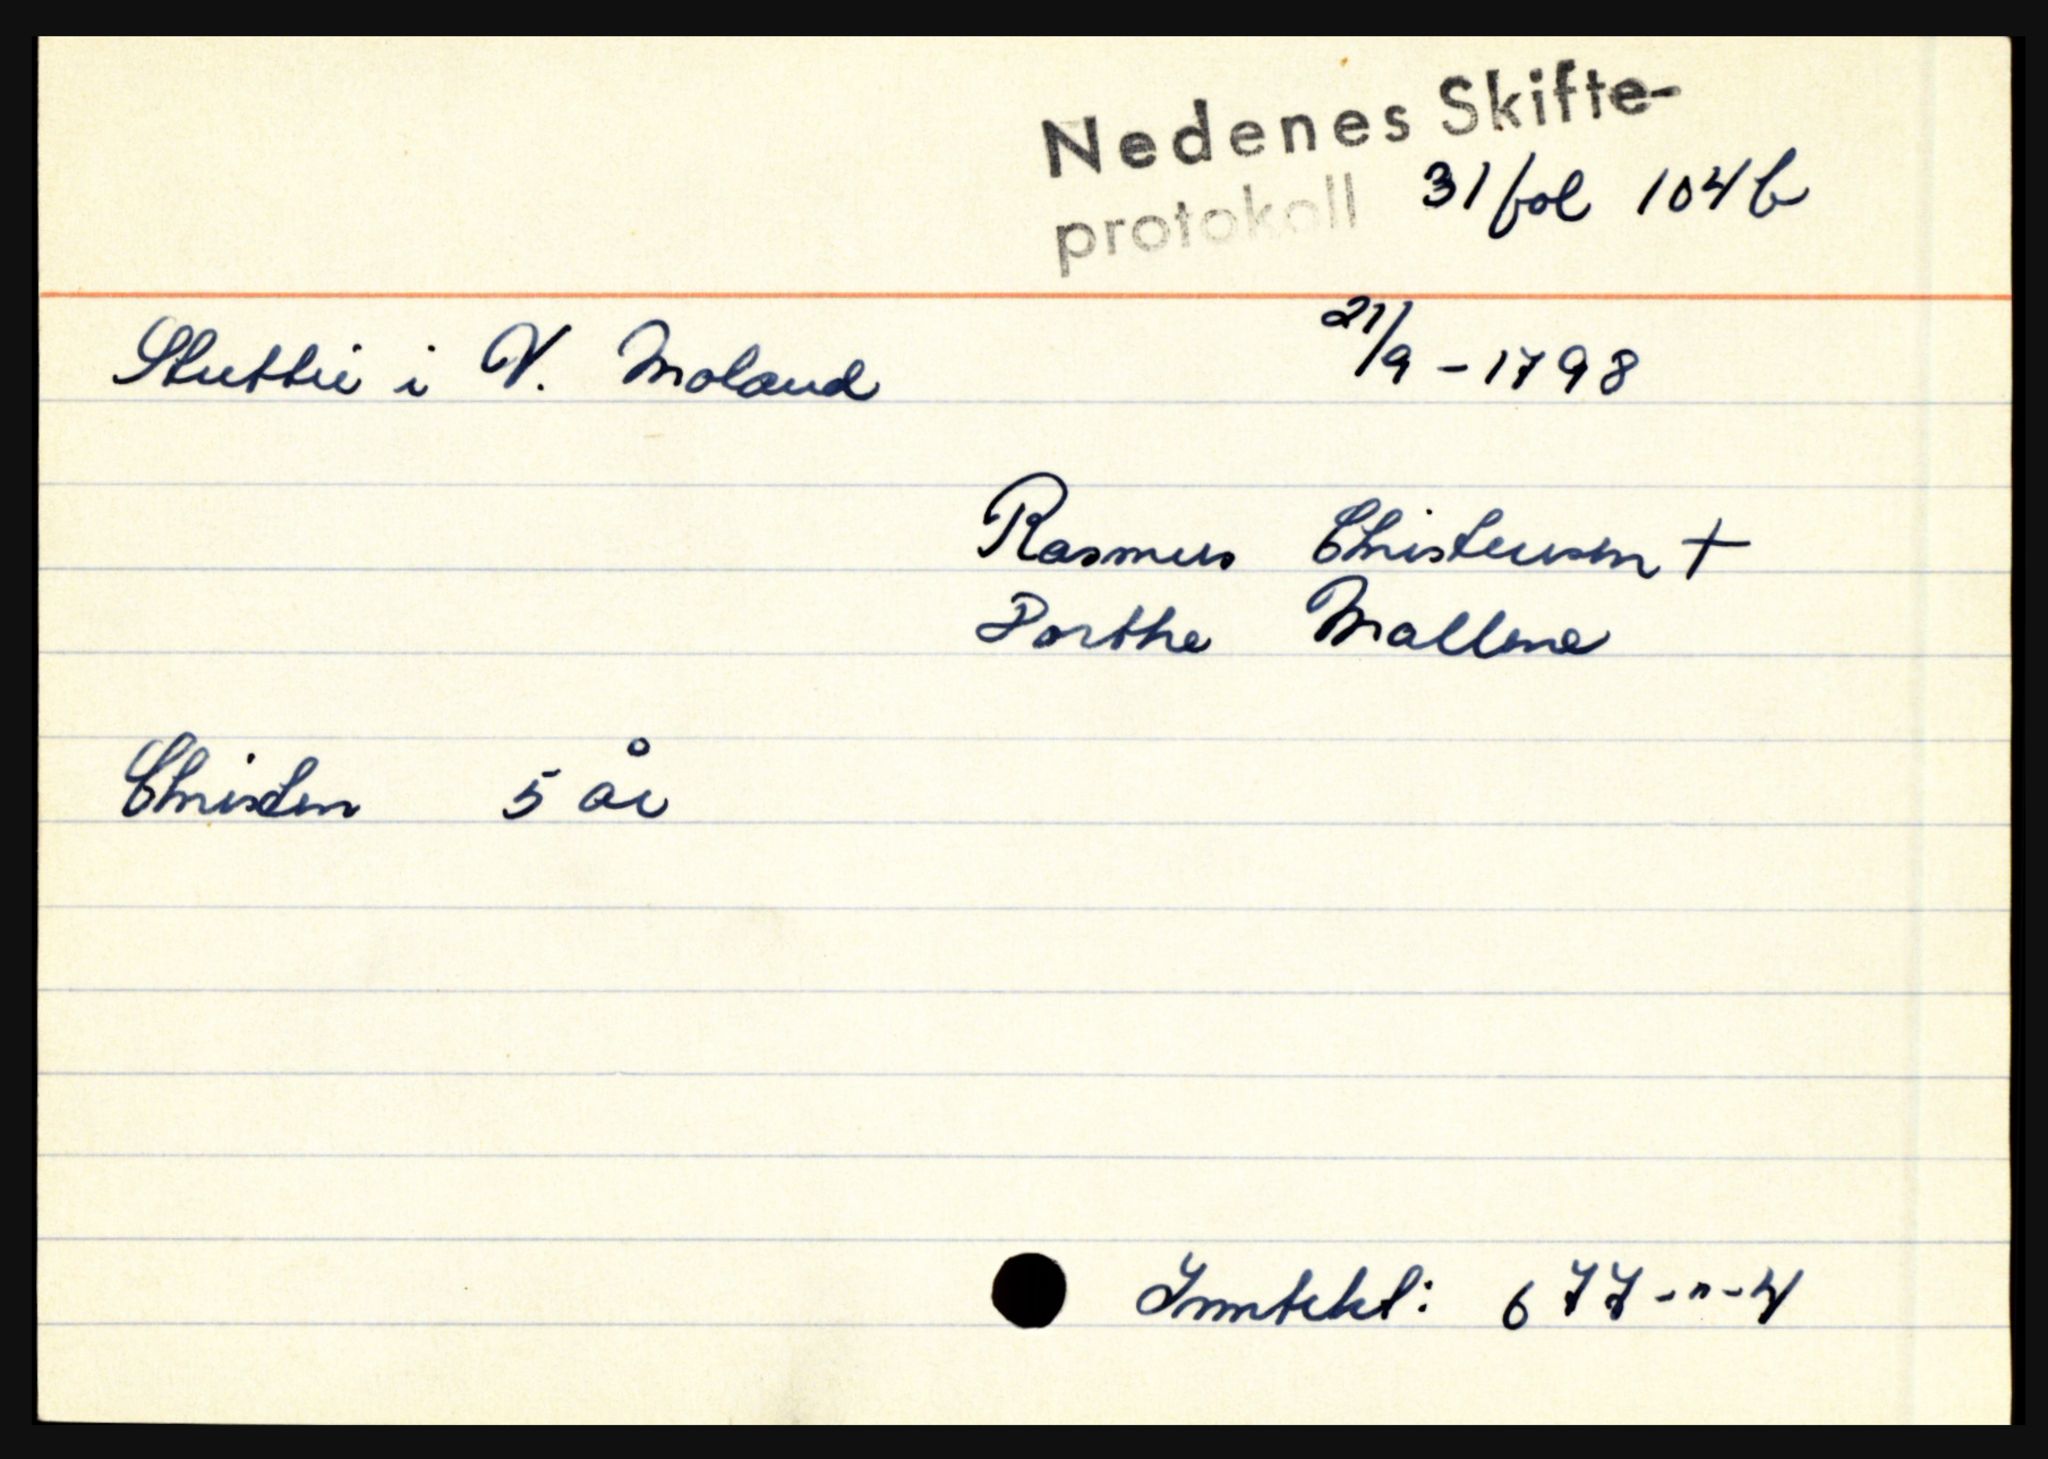 Nedenes Skifte-
protokoll 31 fol 104 b
i V. Moland 21/9 - 1798
Rasmus Christensen +
Dorthe Mallene
Christen 5 år
Inntekt: 677-"-4